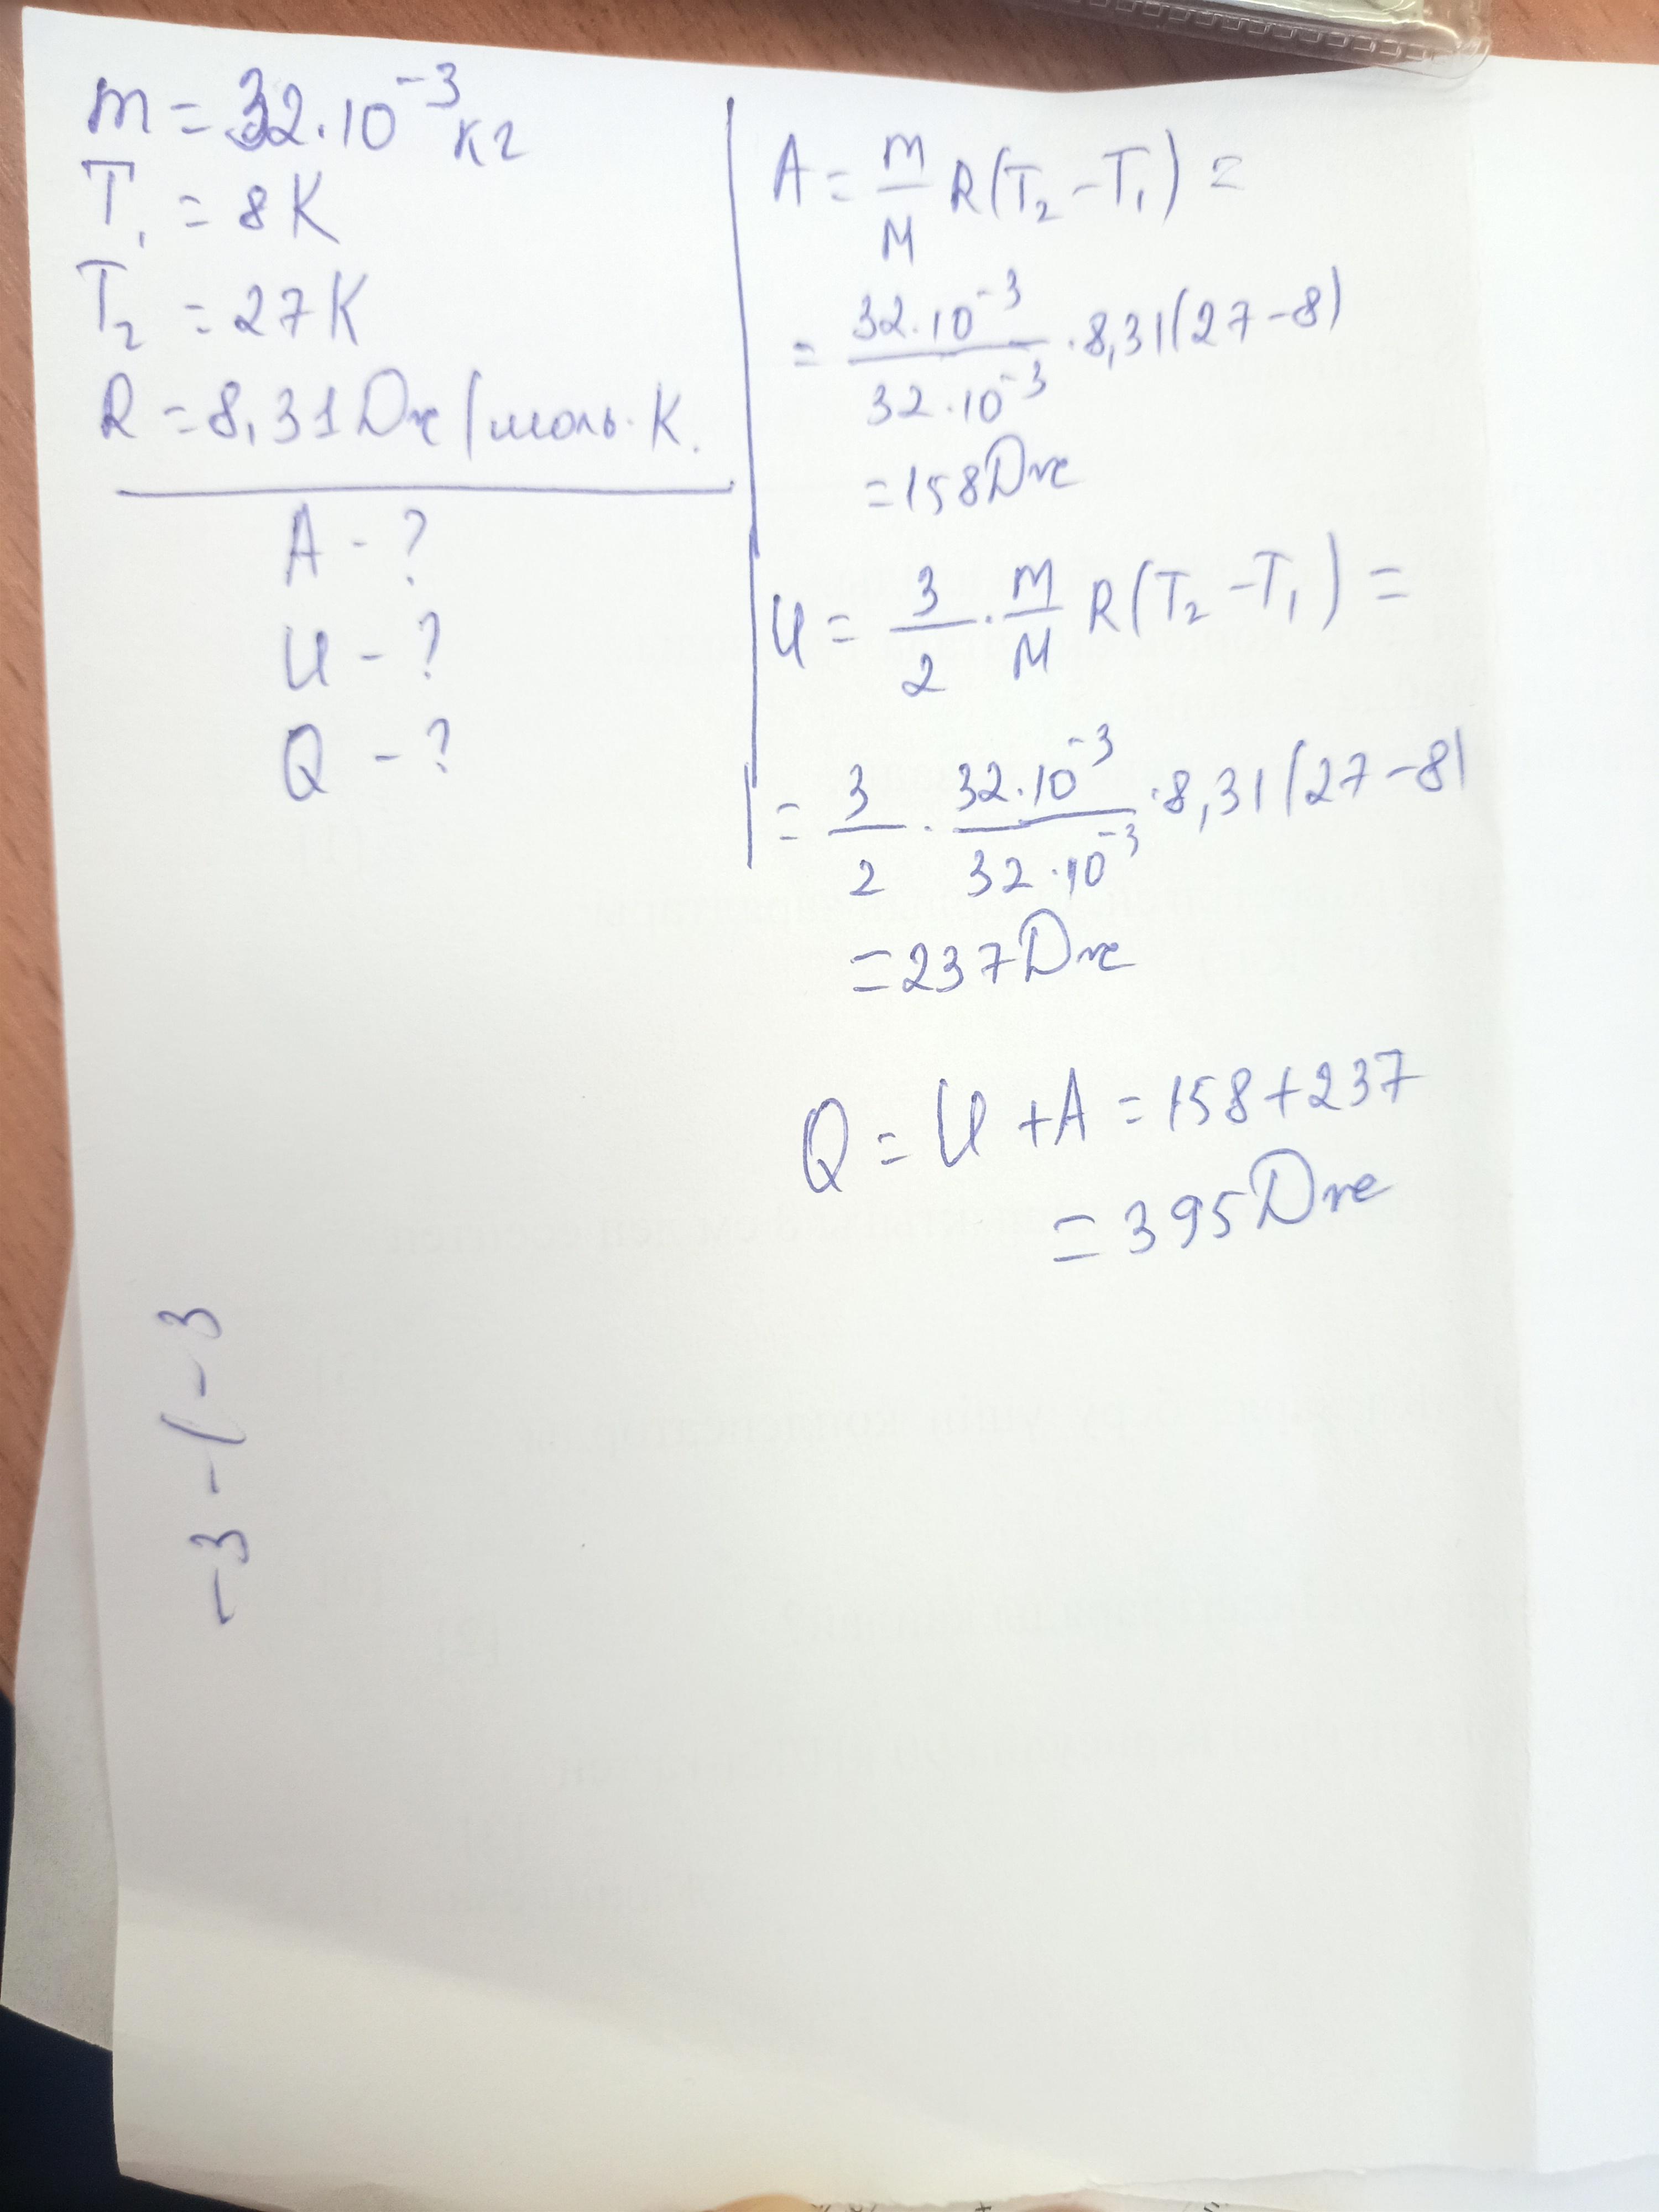 m = 32·10⁻³ кг
T₁ = 8 K
T₂ = 27 K
R = 8,31 Дж/моль·К.
A - ?
U - ?
Q - ?
A = m/M R(T₂ - T₁) =
= 32·10⁻³/32·10⁻³ · 8,31(27-8)
= 158 Дж
U = 3/2 · m/M R(T₂ - T₁) =
= 3/2 · 32·10⁻³/32·10⁻³ · 8,31(27-8)
= 237 Дж
Q = U + A = 158 + 237
= 395 Дж
-3 - (-3